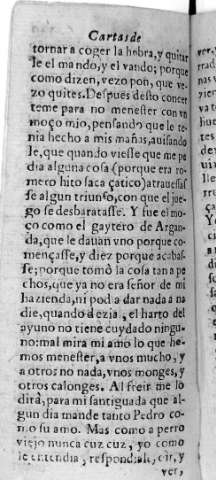 Cartas de
tornar a coger la hebra, y quitar
le el mando, y el vando; porque
como dizen, vezo pon, que ve-
zo quites. Despues desto concer
teme para no menester con vn
moço mio, pensando que le te-
nia hecho a mis mañas, auisando
le, que quando viesse que me pe
dia alguna cosa (porque era ro-
mero hito saca çatico) atrauessas
se algun triunfo, con que el jue-
go se desbaratasse. Y fue el mo-
ço como el gaytero de Argan-
da, que le dauan vno porque co-
mençasse, y diez porque acabas-
se; porque tomò la cosa tan a pe
chos, que ya no era señor de mi
hazienda, ni podia dar nada a na
die, quando dezia, el harto del
ayuno no tiene cuydado ningu-
no: mal mira mi amo lo que he-
mos menester, a vnos mucho, y
a otros no nada, vnos monges, y
otros calonges. Al freir me lo
dirà, para mi santiguada que al-
gun dia mande tanto Pedro co-
mo su amo. Mas como a perro
viejo nunca cuz cuz, yo como
le entendia, respondiale, oir, y
ver,